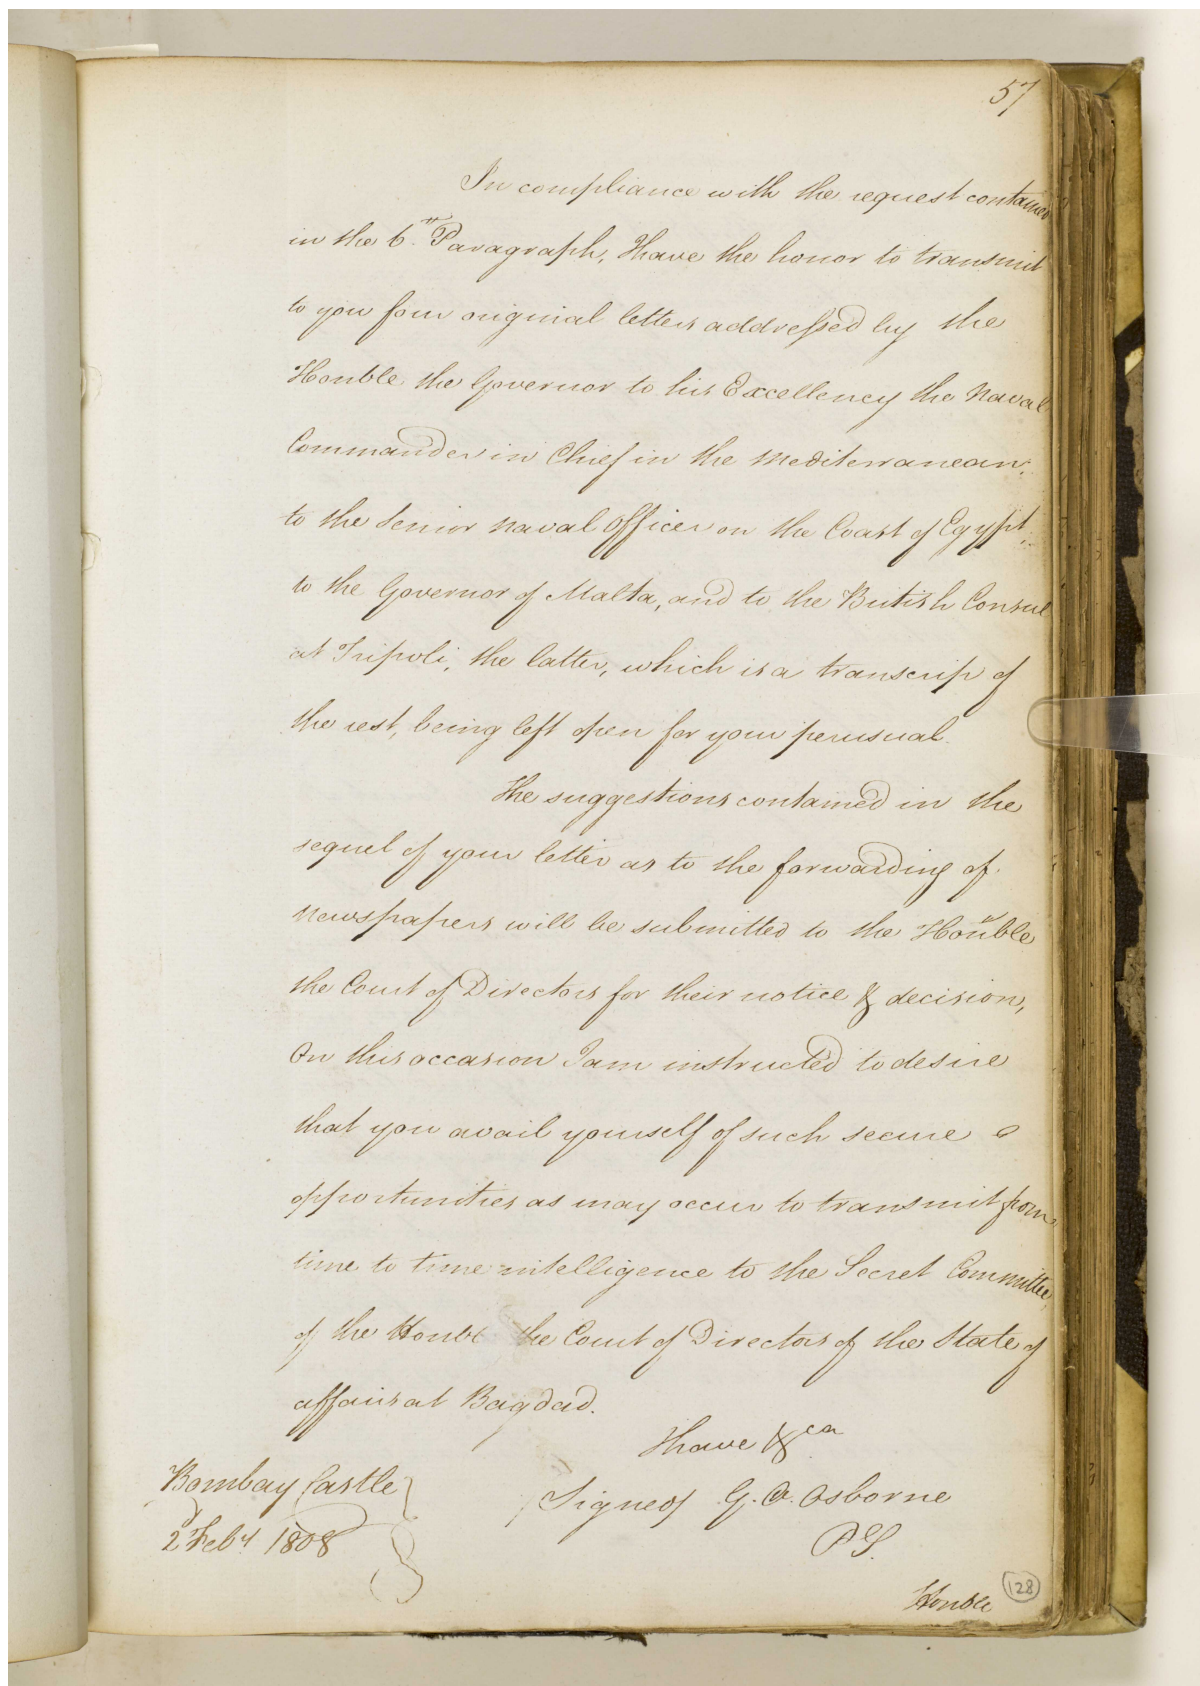 57
In compliance with the request contained
in the 6.th Paragraph, I have the honor to transmit
to you four original letters addressed by the
Honble the Governor to his Excellency the Naval
Commander in Chief in the Mediterranean,
to the Senior Naval Officer on the Coast of Egypt,
to the Governor of Malta, and to the British Consul
at Tripoli, the latter, which is a transcrip of
the rest, being left open for your perusual.
The suggestions contained in the
sequel of your letter as to the forwarding of
Newspapers will be submitted to the Honble
the Court of Directors for their notice & decision,
On this occasion I am instructed to desire
that you avail yourself of such secure
opportunities as may occur to transmit from
time to time intelligence to the Secret Committee
of the Honble the Court of Directors of the State of
affairs at Bagdad.
I have &ca
Bombay Castle
Signed G. A. Osborne
2d Feby 1808
PS.
Honble
128